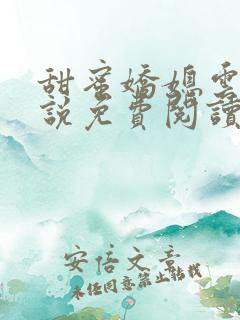 甜蜜嬌媳雲
說免費閱讀
安信文章
未经同意禁止转载